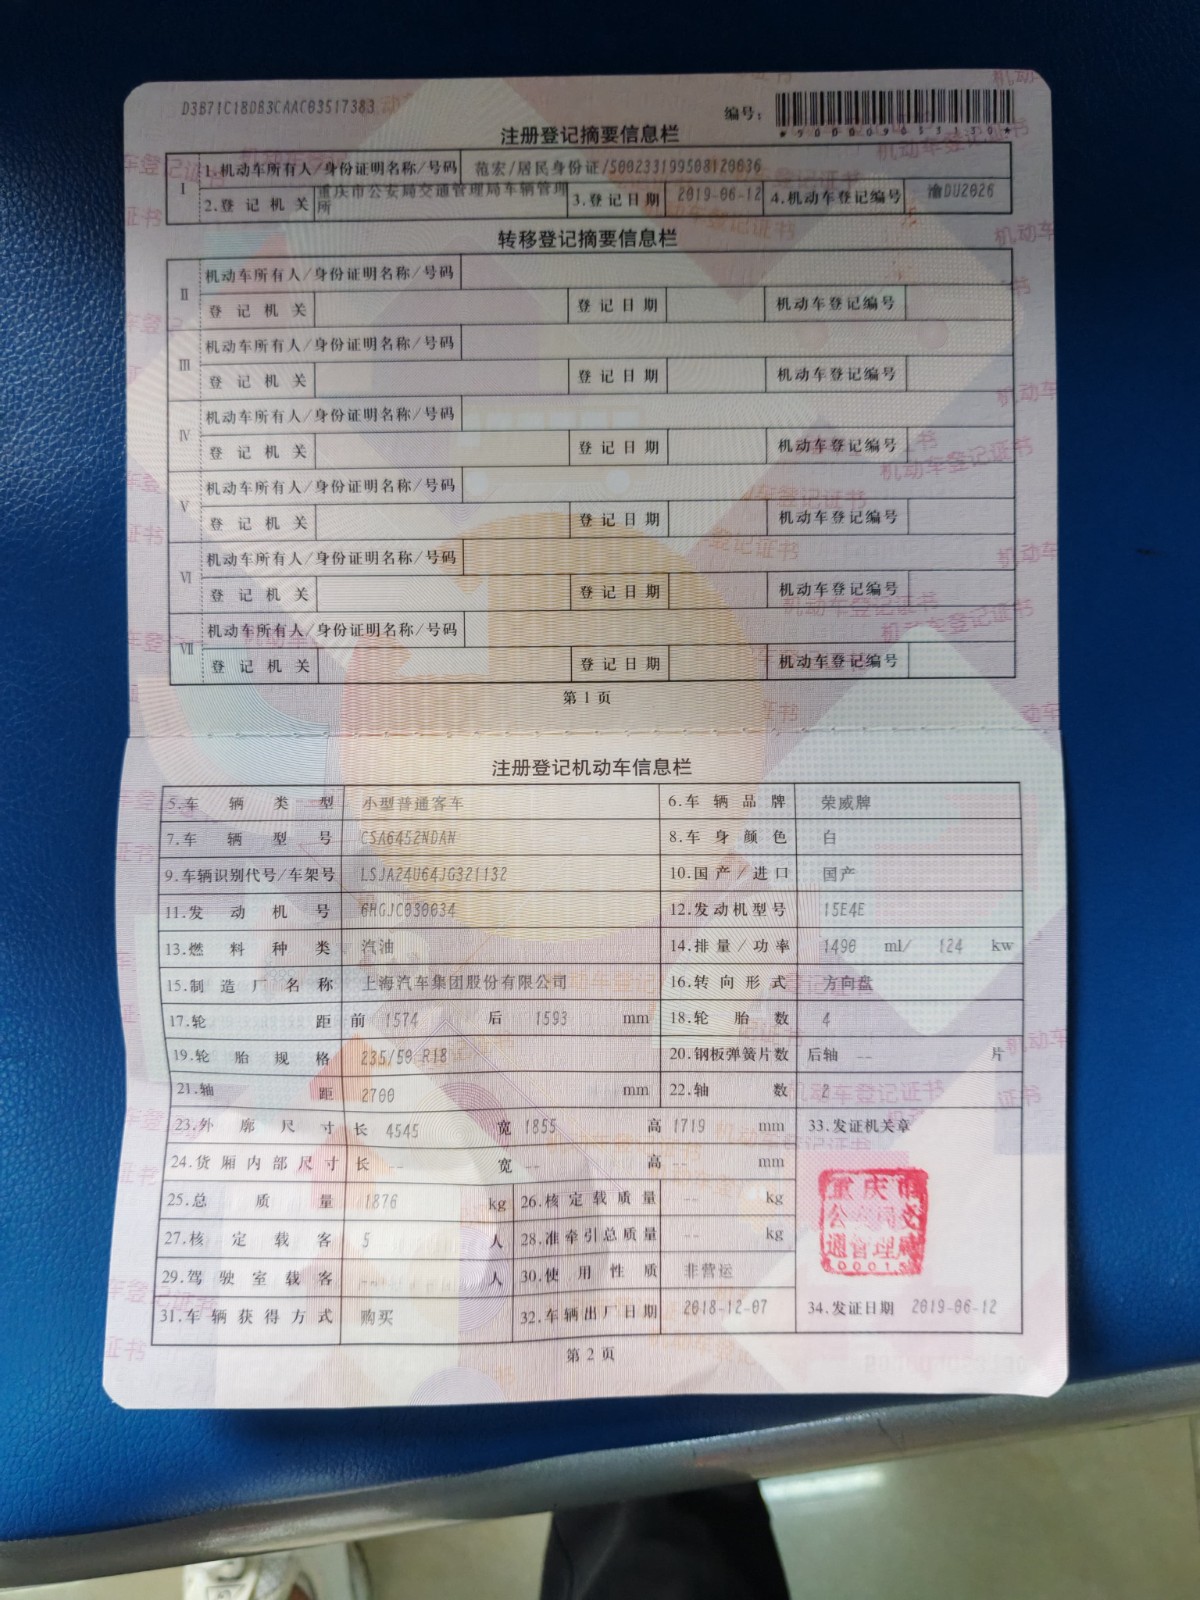 D3B71C18DB3CAAC03517383
编号：
*500009053130*
注册登记摘要信息栏
I 1.机动车所有人/身份证明名称/号码 范宏/居民身份证/500233199508120036
2.登记机关 重庆市公安局交通管理局车辆管理所 3.登记日期 2019-06-12 4.机动车登记编号 渝DU2026
转移登记摘要信息栏
II 机动车所有人/身份证明名称/号码
登记机关 登记日期 机动车登记编号
III 机动车所有人/身份证明名称/号码
登记机关 登记日期 机动车登记编号
IV 机动车所有人/身份证明名称/号码
登记机关 登记日期 机动车登记编号
V 机动车所有人/身份证明名称/号码
登记机关 登记日期 机动车登记编号
VI 机动车所有人/身份证明名称/号码
登记机关 登记日期 机动车登记编号
VII 机动车所有人/身份证明名称/号码
登记机关 登记日期 机动车登记编号
第1页
注册登记机动车信息栏
5.车辆类型 小型普通客车 6.车辆品牌 荣威牌
7.车辆型号 CSA6452NDAN 8.车身颜色 白
9.车辆识别代号/车架号 LSJA24U64JG321132 10.国产/进口 国产
11.发动机号 6HGJC030034 12.发动机型号 15E4E
13.燃料种类 汽油 14.排量/功率 1490 ml/ 124 kw
15.制造厂名称 上海汽车集团股份有限公司 16.转向形式 方向盘
17.轮距 前 1574 后 1593 mm 18.轮胎数 4
19.轮胎规格 235/50 R18 20.钢板弹簧片数 后轴 -- 片
21.轴距 2700 mm 22.轴数 2
23.外廓尺寸 长 4545 宽 1855 高 1719 mm 33.发证机关章
24.货厢内部尺寸 长 -- 宽 -- 高 -- mm
25.总质量 1876 kg 26.核定载质量 -- kg
27.核定载客 5 人 28.准牵引总质量 -- kg
29.驾驶室载客 -- 人 30.使用性质 非营运
31.车辆获得方式 购买 32.车辆出厂日期 2018-12-07 34.发证日期 2019-06-12
重庆市
公安局交
通管理局
第2页